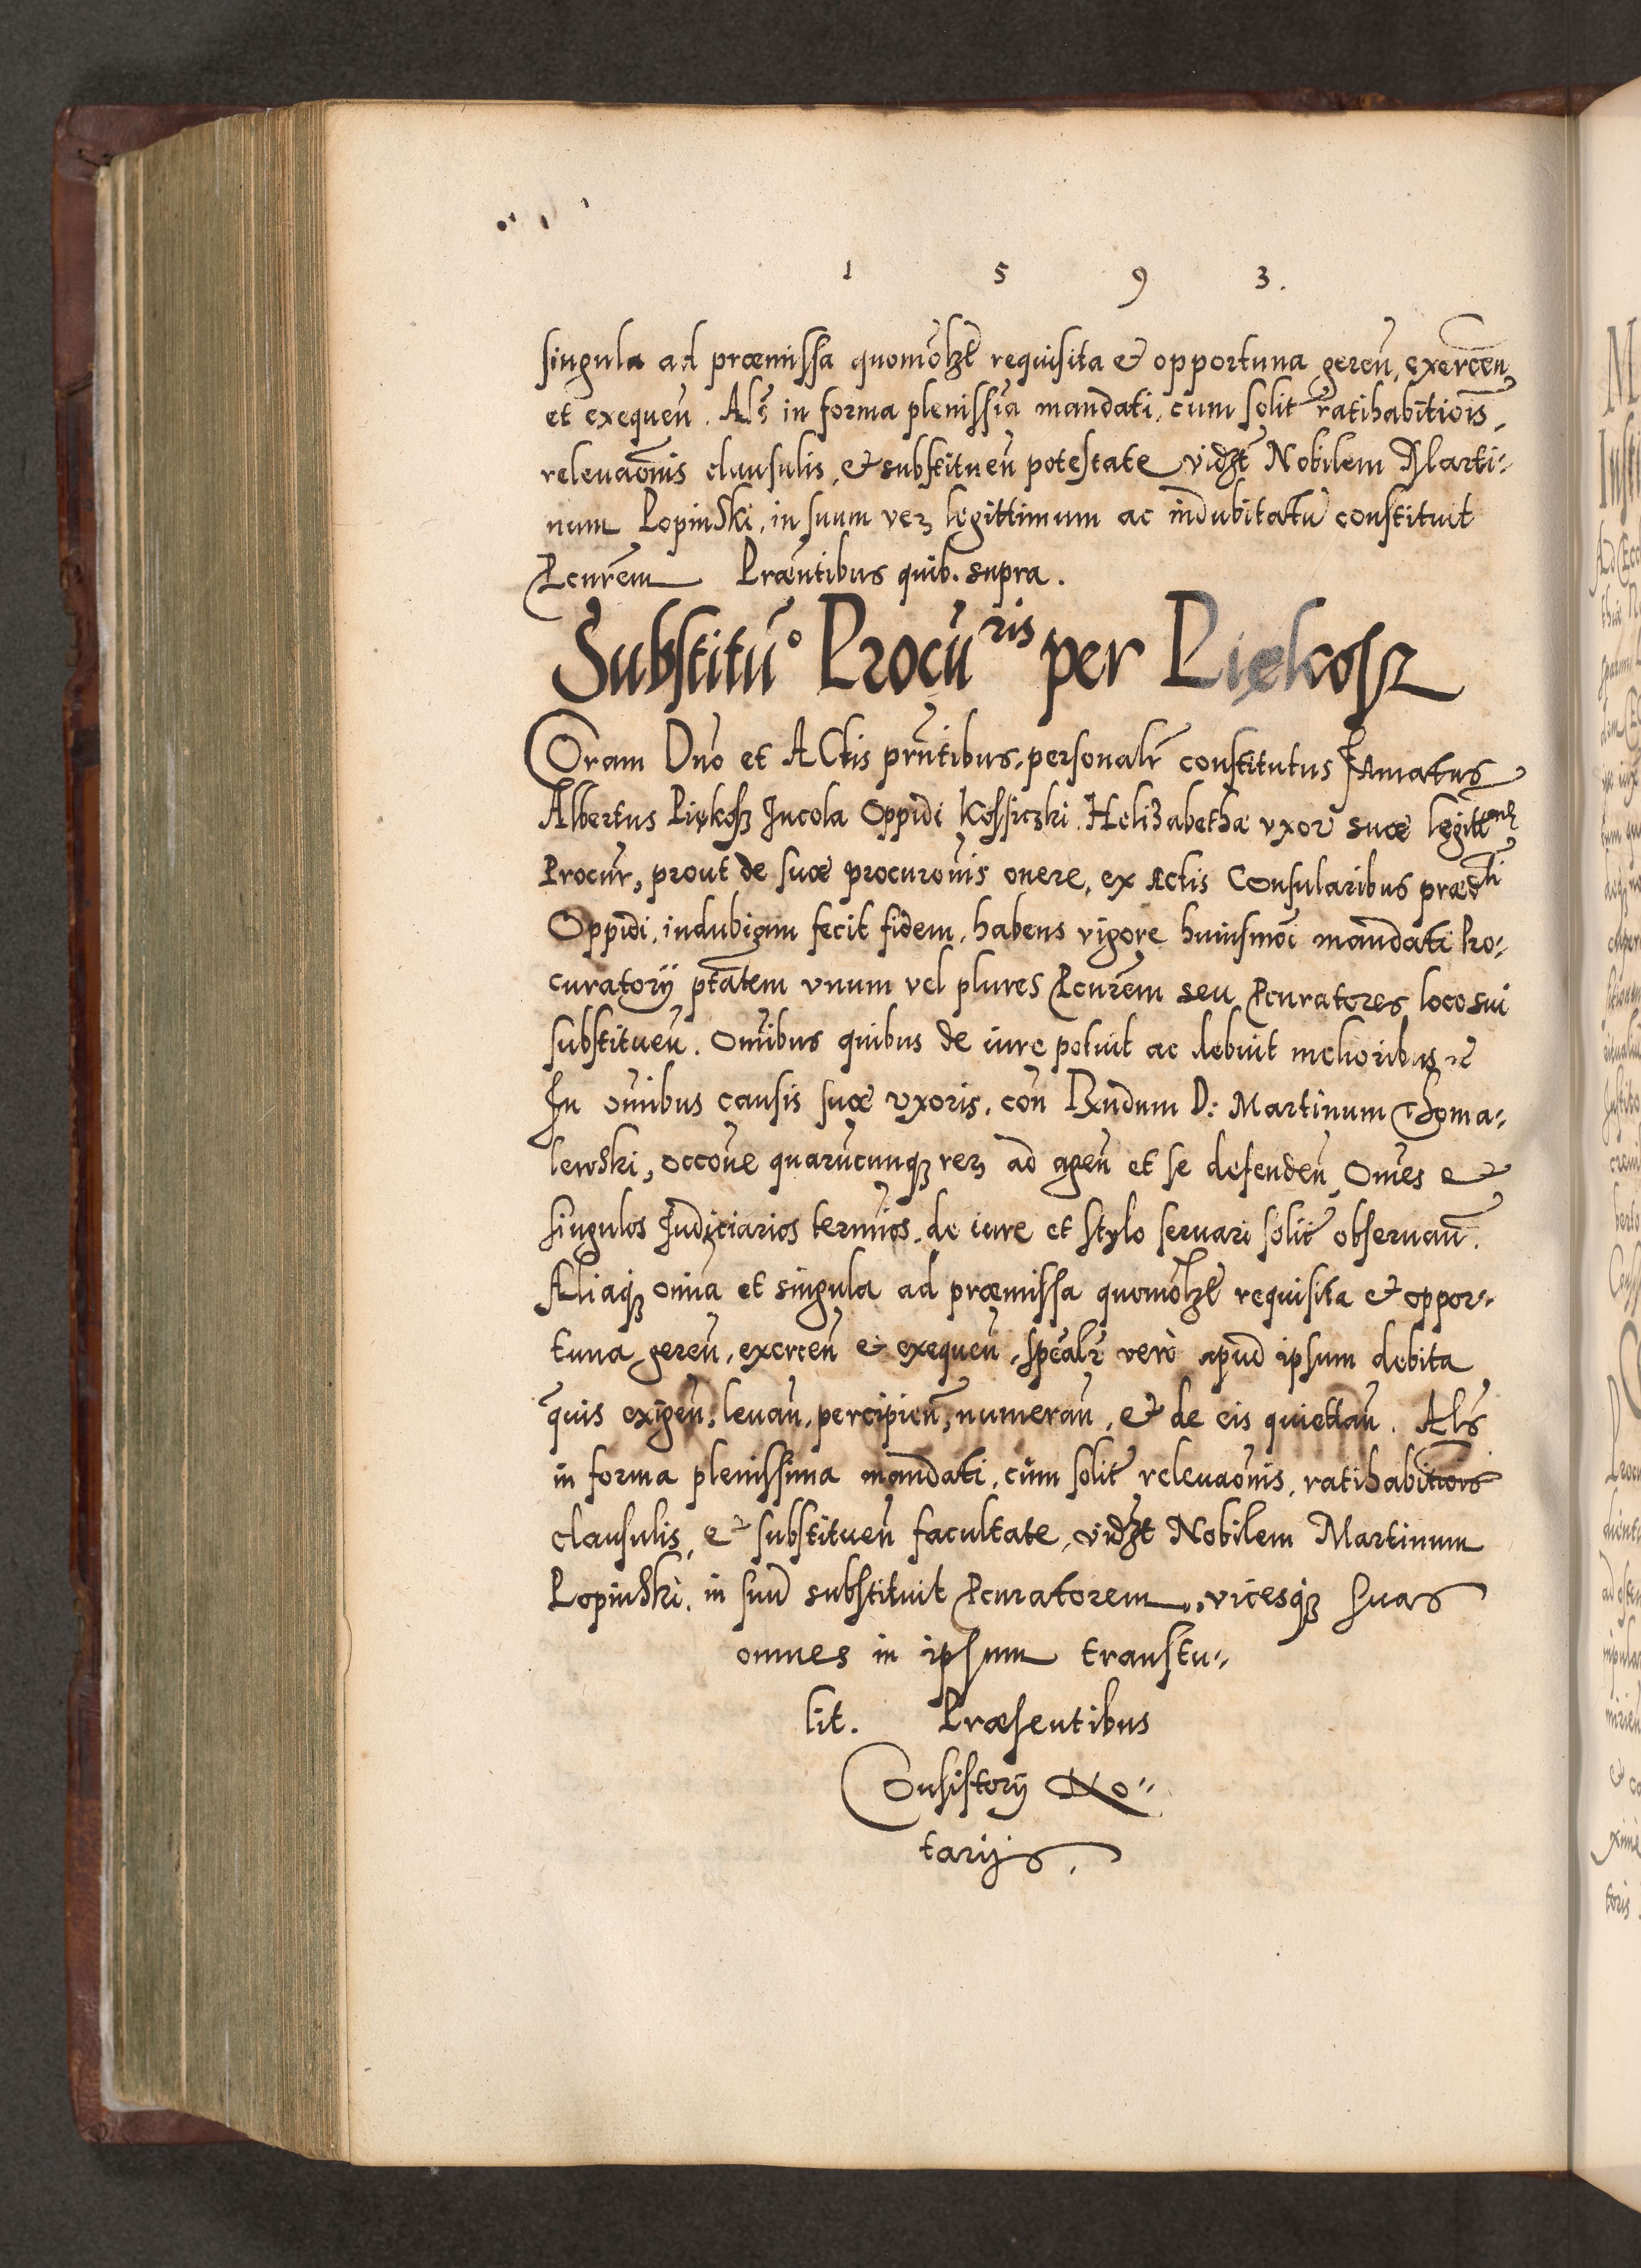 1 5 9 3.
singula ad præmissa quomōlzt requisita et opportuna gereñ, exerceñ,
et exequeñ. Als in forma plenissīa mandati, cum solit ratihabitiois,
releuaōnis clausulis, et substitueñ potestate vidzt Nobilem Marti„
num Lopinski, in suum verz legittimum ac indubitatū constituit
Pcurēm Præntibus quib. supra.
Substitū° Procūris per Piękosz
Coram Dno et Actis prñtibus, personalr constitutus Famatus
Albertus Piękosz Incola Oppidi Kossiczki Helizabethæ vxor suæ legitt
Procur, prout de suæ procuronis onere, ex Actis Consularibus prædcti
Oppidi, indubiam fecit fidem, habens vigore huiusmōi mandati Pro„
curatorij ptātem vnum vel plures Pcurēm seu Pcuratores loco sui
substitueñ. Omībus quibus de iure potuit ac debuit melioribus etc
In omībus causis suæ vxoris, con Rndum D: Martinum Thoma„
lewski, occoñe quarūcunqz rerz ad ageñ et se defendeñ, Omēs et
singulos Judiciarios termīos, de iure et stylo seruari solit obseruañ.
Aliaqz omīa et singula ad præmissa quomōlzt requisita et oppor„
tuna gereñ, exerceñ et exequeñ, spēalr verò apud ipsum debita
quis exigeñ, leuañ, percipieñ, numerañ, et de eis quiettañ. Als
in forma plenissima mandati, cum solit releuaōnis, ratihabitiois
clausulis, et substitueñ facultate, vidzt Nobilem Martinum
Lopinski, in suū substituit Pcuratorem, vicesqz suas
omnes in ipsum transtu„
lit. Præsentibus
Consistorij No„
tarijs.